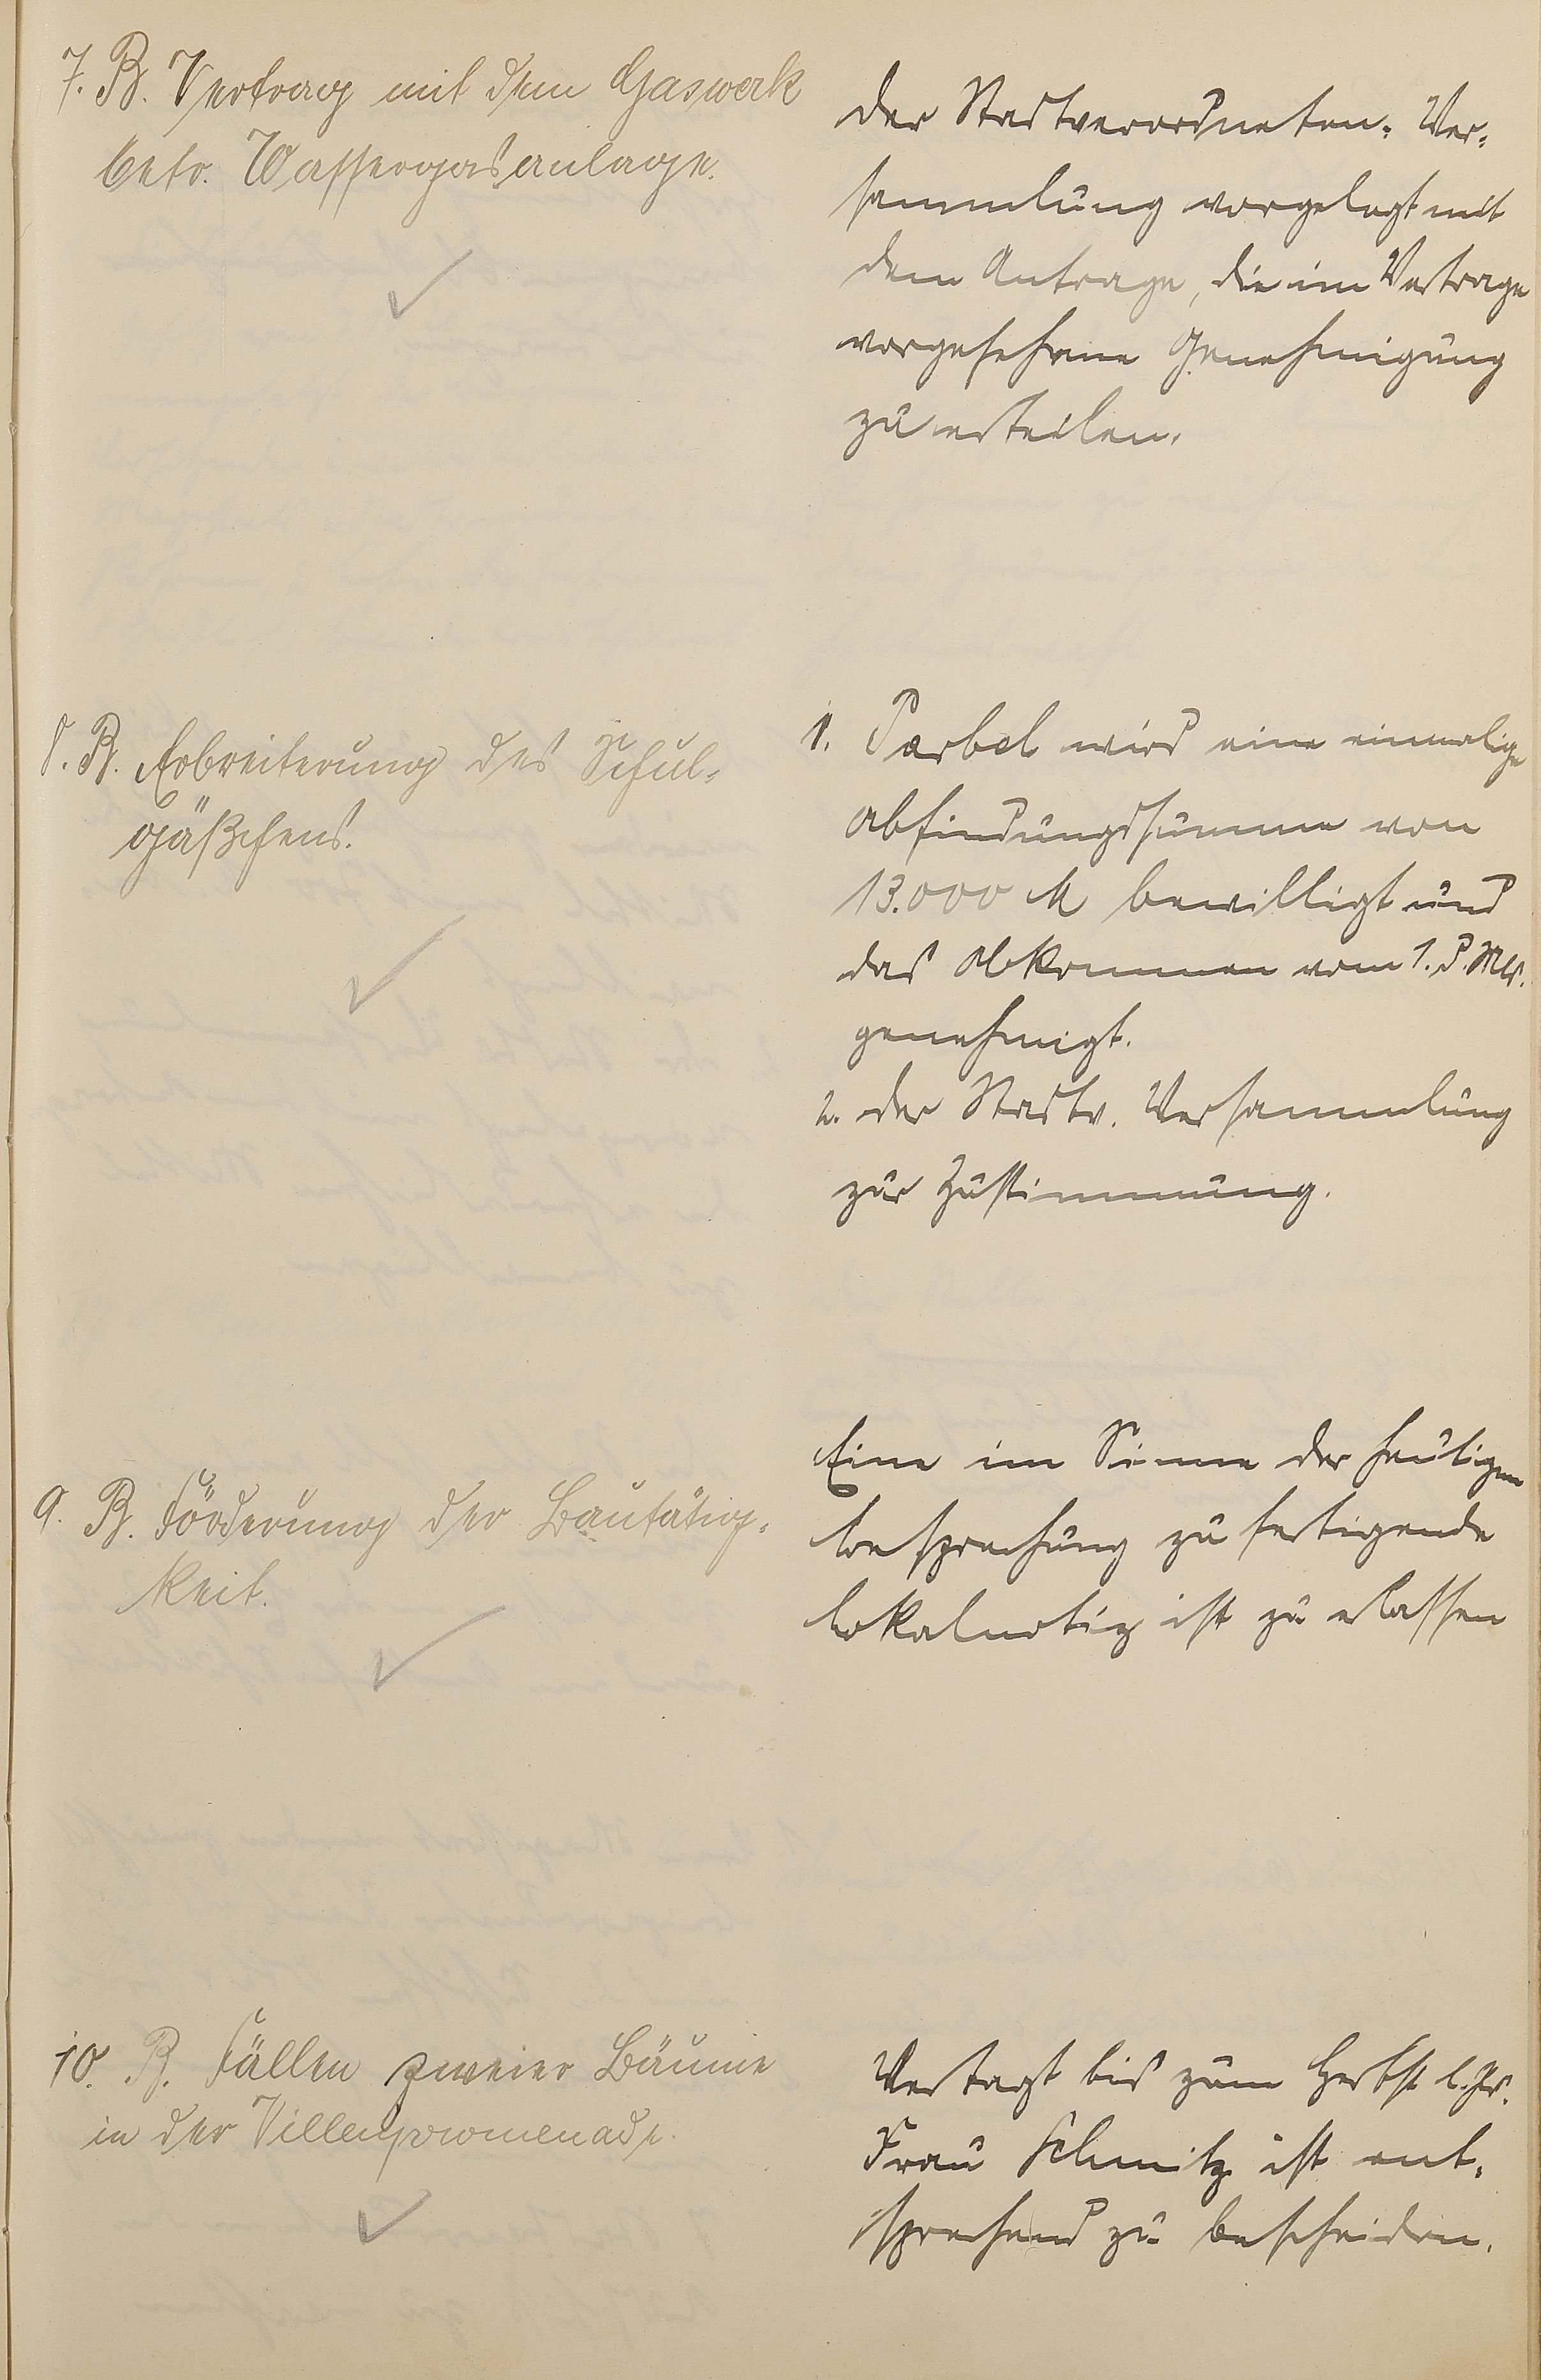 7. B. Vertrag mit dem Gaswerk
betr. Wassergasanlage.
der Stadtverordneten-Ver-
sammlung vorgelegt mit
dem Antrage, die im Vertrage
vorgesehene Genehmigung
zu erteilen.
8. B. Erbreiterung des Schul-
gäßchens.
1. Parbel wird eine einmalige
Abfindungssumme von
13.000 M bewilligt und
das Abkommen vom 1. d. Mts.
genehmigt.
2. der Stadtv. Versammlung
zur Zustimmung.
9. B. Förderung der Bautätig-
keit.
Eine im Sinne der heutigen
Besprechung zu fertigende
Lokalnotiz ist zu erlassen
10. B. Fällen zweier Bäume
in der Villenpromenade.
Vertagt bis zum Herbst l. Js.
Frau Schmitz ist ent-
sprechend zu bescheiden.